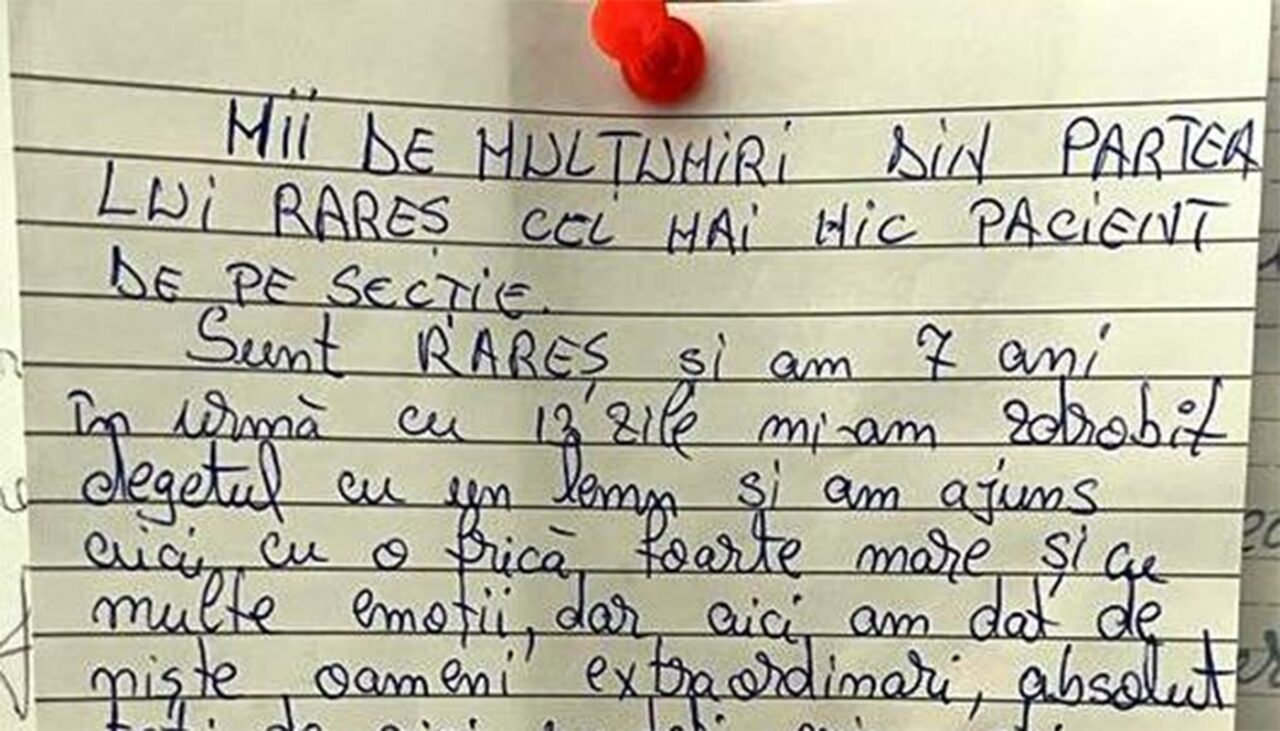 MII DE MULȚUMIRI DIN PARTEA
LUI RARES CEL MAI MIC PACIENT
DE PE SECȚIE.
Sunt RARES si am 7 ani
în urmă cu 13 zile mi-am zdrobit
degetul cu un lemn si am ajuns
aici, cu o frică foarte mare și cu
multe emoții, dar aici am dat de
niște oameni extraordinari, absolut